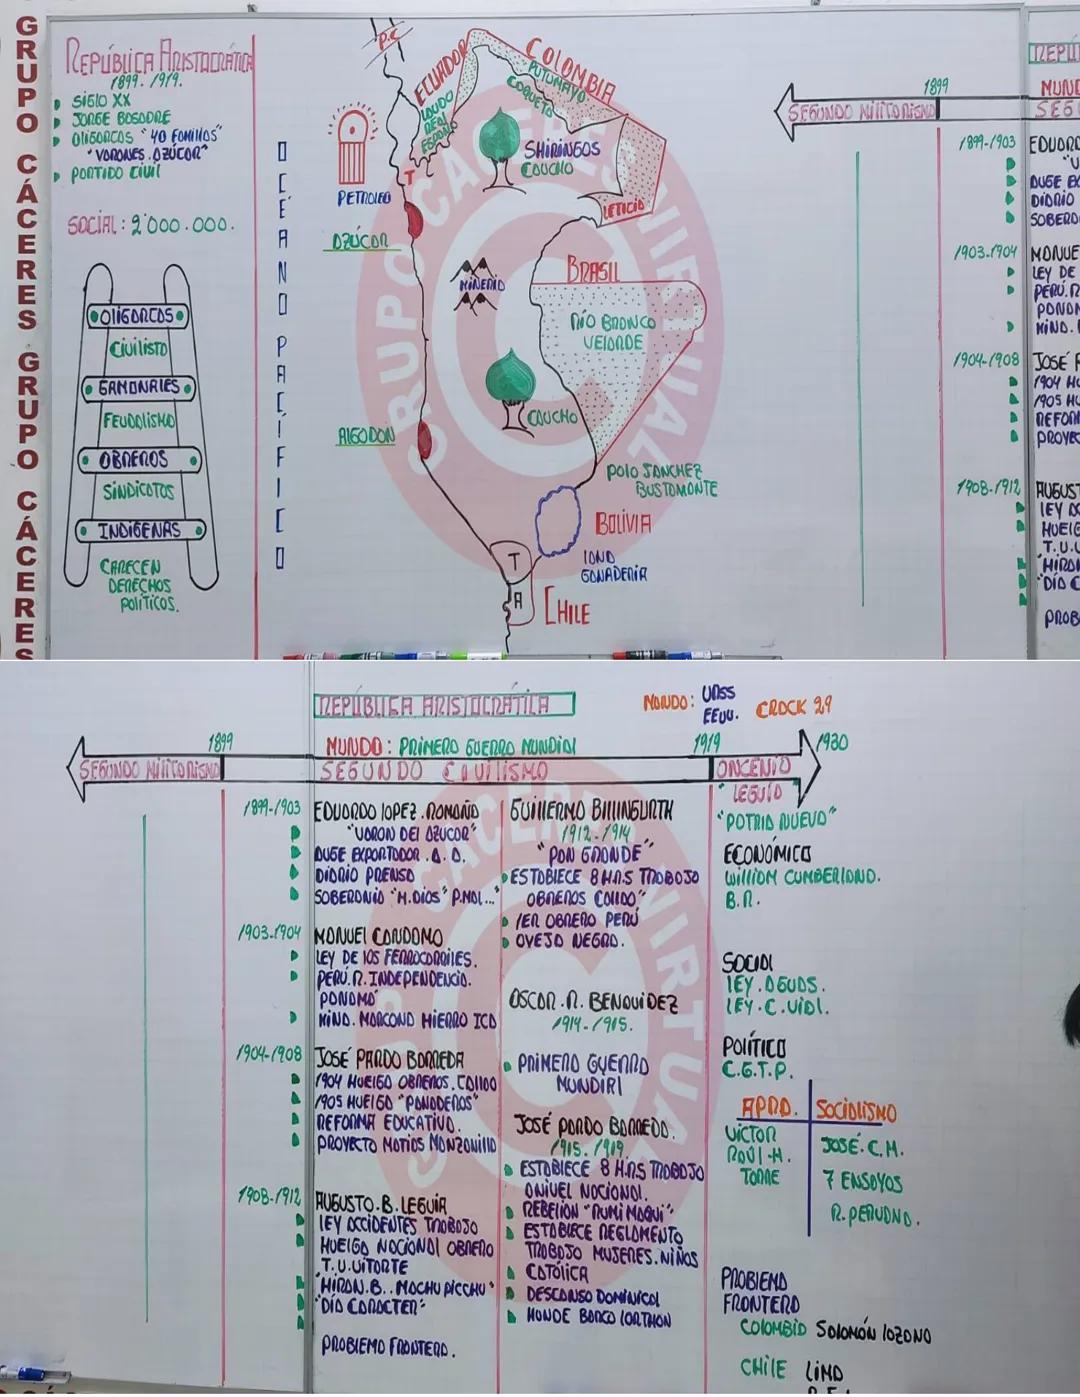 GRUPO CÁCERES GRUPO CÁCERES
REPÚBLICA ARISTOCRÁTICA
1899-1919.
SIGLO XX
JORGE BASADRE
OLIGARCAS "40 FAMILIAS"
"VARONES.AZÚCAR"
PARTIDO CIVIL
SOCIAL: 2'000.000.
OLIGARCAS
CIVILISTA
GAMONALES
FEUDALISMO
OBREROS
SINDICATOS
INDÍGENAS
CARECEN
DERECHOS
POLÍTICOS.
OCÉANO PACÍFICO
P.C
ECUADOR
LAUDO
REAL
ESPAÑOL
COLOMBIA
PUTUMAYO
CAQUETA
T
PETROLEO
AZÚCAR
SHIRINGAS
CAUCHO
LETICIA
MINERIA
BRASIL
RÍO BRANCO
VELARDE
CAUCHO
ALGODON
POLO SANCHEZ
BUSTAMONTE
BOLIVIA
T
LANA
GANADERIA
A
CHILE
1899
SEGUNDO MILITARISMO
1899-1903
1903-1904
1904-1908
1908-1912
REPÚ
MUND
SEG
EDUARD
"V
AUGE EX
DIARIO
SOBERA
MANUE
LEY DE
PERÚ.R
PANAM
MIND. M
JOSÉ P
1904 HU
1905 HU
REFOR
PROYE
AUGUST
LEY AC
HUELG
T.U.V
"HIRAM
"DIA C
PROB
REPÚBLICA ARISTOCRÁTICA
MUNDO: URSS
EEUU. CRACK 29
1899
MUNDO: PRIMERA GUERRA MUNDIAL
1919
1930
SEGUNDO MILITARISMO
SEGUNDO CIVILISMO
ONCENIO
LEGUÍA
1899-1903
EDUARDO LOPEZ.ROMAÑA
"VARON DEL AZUCAR"
AUGE EXPORTADOR.A.A.
DIARIO PRENSA
SOBERANIA "M.DIOS" P.MAL..."
1903-1904
MANUEL CANDAMO
LEY DE LOS FERROCARRILES.
PERÚ.R.INDEPENDENCIA.
PANAMÁ
MIND. MARCONA HIERRO ICA
1904-1908
JOSÉ PARDO BARREDA
1904 HUELGA OBREROS.CALLAO
1905 HUELGA "PANADEROS"
REFORMA EDUCATIVA.
PROYECTO MATIAS MANZANILLA
1908-1912
AUGUSTO.B.LEGUÍA
LEY ACCIDENTES TRABAJO
HUELGA NACIONAL OBRERO
T.U.VITARTE
"HIRAM.B.. MACHU PICCHU"
"DÍA CARACTER"
PROBLEMA FRONTERA.
GUILLERMO BILLINGURTH
1912-1914
"PAN GRANDE"
ESTABLECE 8 HRS TRABAJO
OBREROS CALLAO"
1ER OBRERO PERÚ
OVEJA NEGRA.
OSCAR.R.BENAVIDEZ
1914-1915.
PRIMERA GUERRA
MUNDIAL
JOSÉ PARDO BARREDA.
1915-1919.
ESTABLECE 8 HRS TRABAJO
ANIVEL NACIONAL.
REBELION "RUMI MAQUI"
ESTABLECE REGLAMENTO
TRABAJO MUJERES.NIÑOS
CATÓLICA
DESCANSO DOMINICAL
HUNDE BARCO LORTHON
"PATRIA NUEVA"
ECONÓMICO
WILLIAM CUMBERLAND.
B.R.
SOCIAL
LEY.AGUAS.
LEY.C.VIAL.
POLÍTICO
C.G.T.P.
APRA.
SOCIALISMO
VICTOR
RAÚL-H.
TORRE
JOSÉ.C.M.
7 ENSAYOS
R.PERUANA.
PROBLEMA
FRONTERA
COLOMBIA SALOMÓN LOZANO
CHILE LIMA